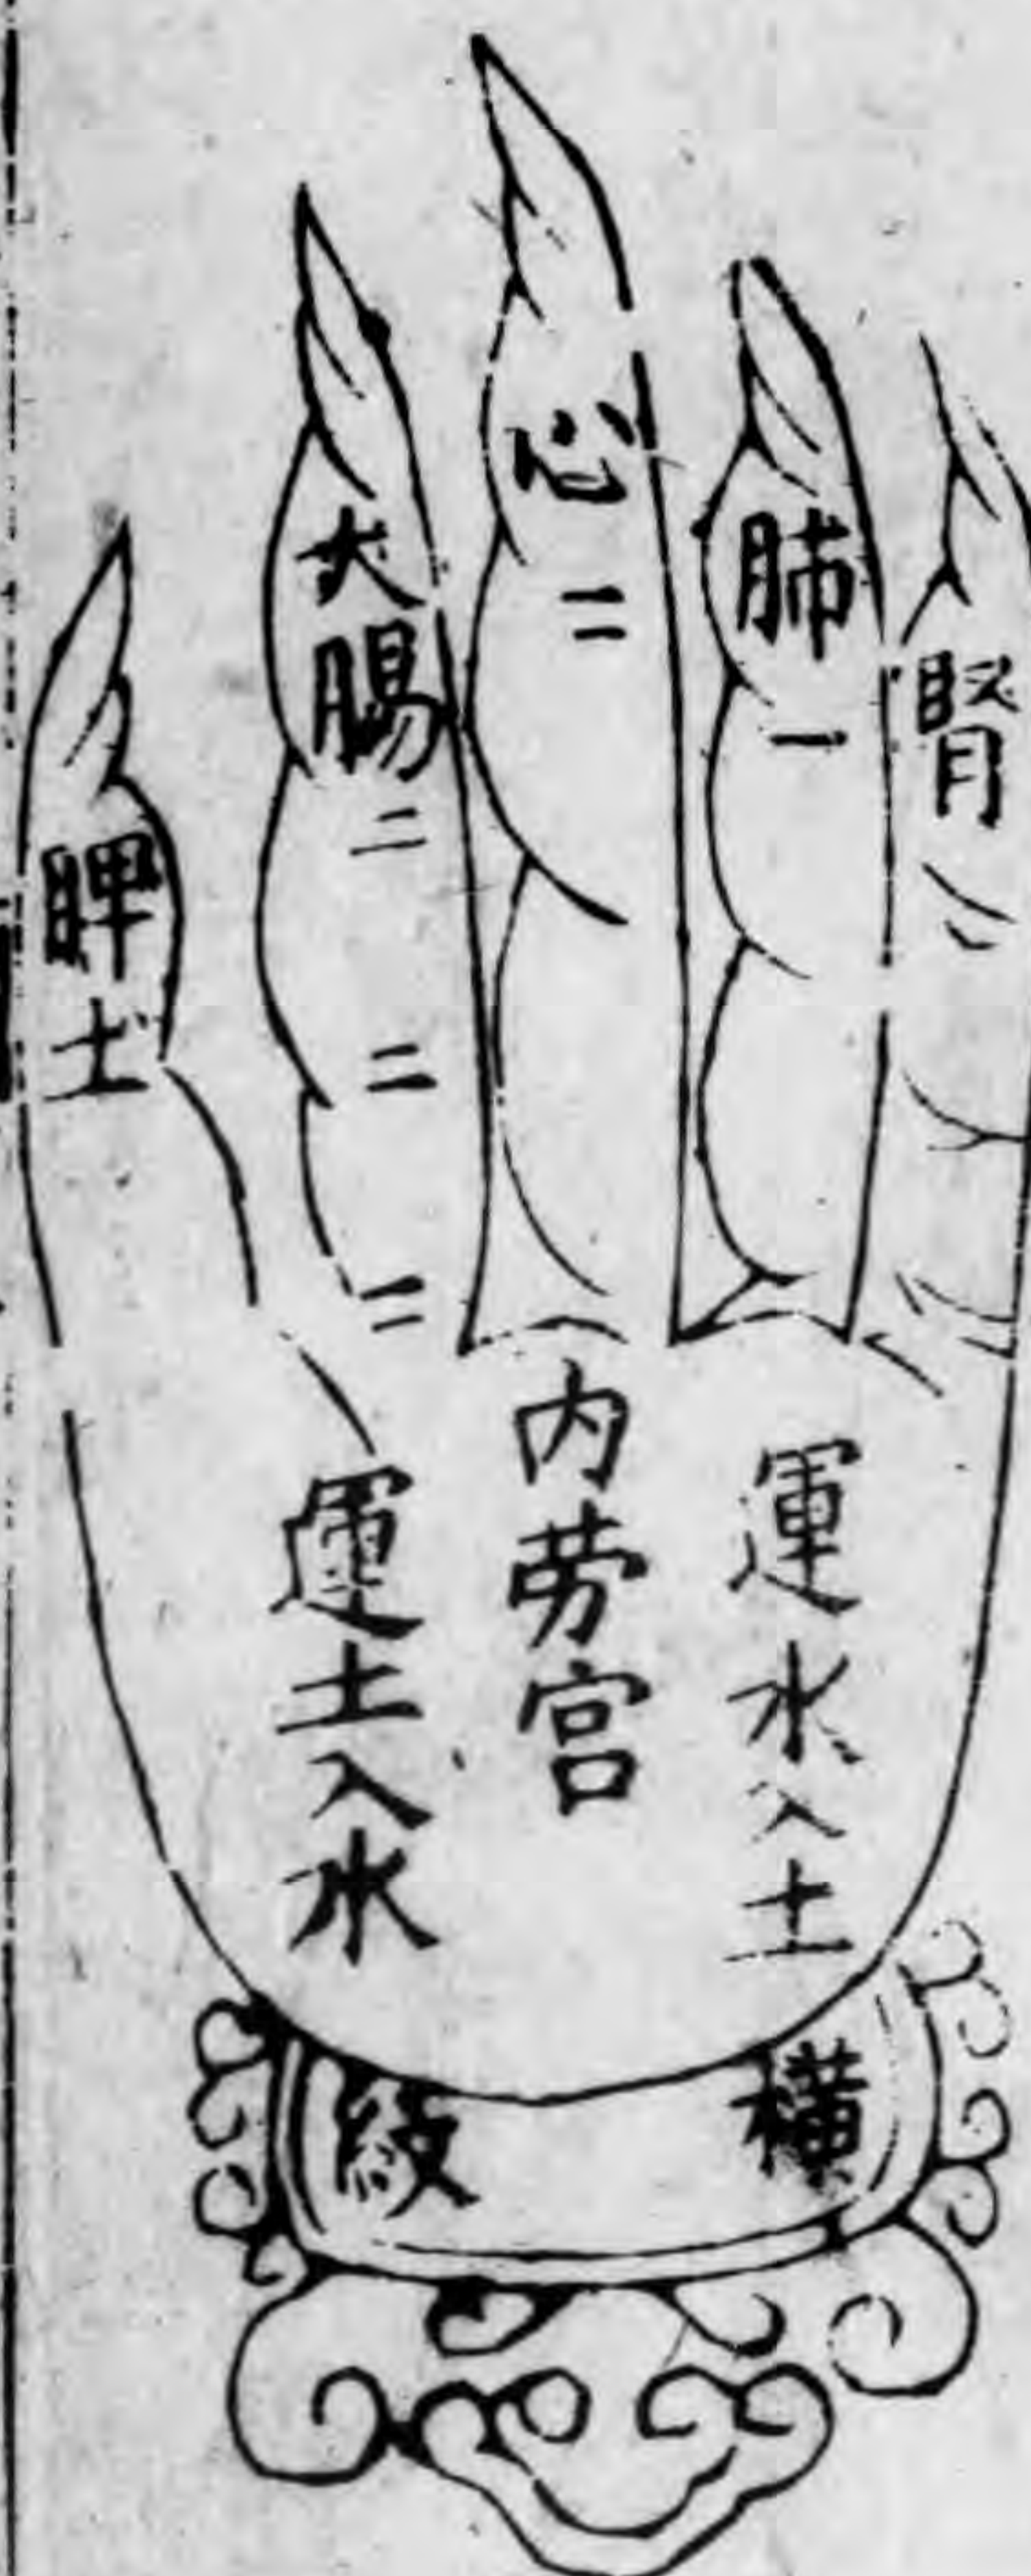 腎
二
肺
一
心
二
大腸
二
二
二
脾土
運水入土
内劳宫
運土入水
横紋